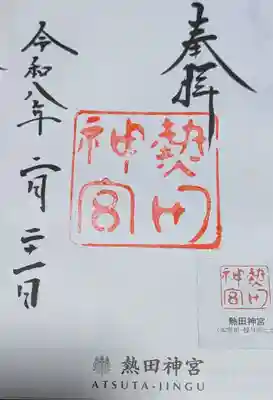 奉拝
熱田
神宮
令和八年二月二十一日
熱田
神宮
熱田神宮
熱田神宮
ATSUTA-JINGU